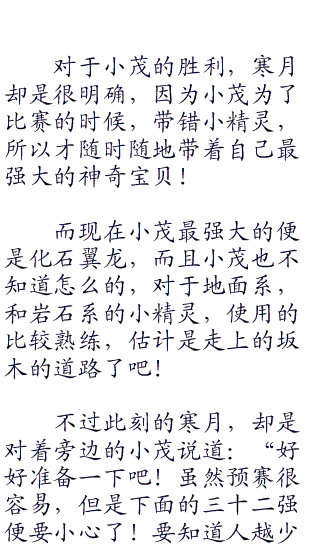 对于小茂的胜利，寒月
却是很明确，因为小茂为了
比赛的时候，带错小精灵，
所以才随时随地带着自己最
强大的神奇宝贝！
而现在小茂最强大的便
是化石翼龙，而且小茂也不
知道怎么的，对于地面系，
和岩石系的小精灵，使用的
比较熟练，估计是走上的坂
木的道路了吧！
不过此刻的寒月，却是
对着旁边的小茂说道：“好
好准备一下吧！虽然预赛很
容易，但是下面的三十二强
便要小心了！要知道人越少